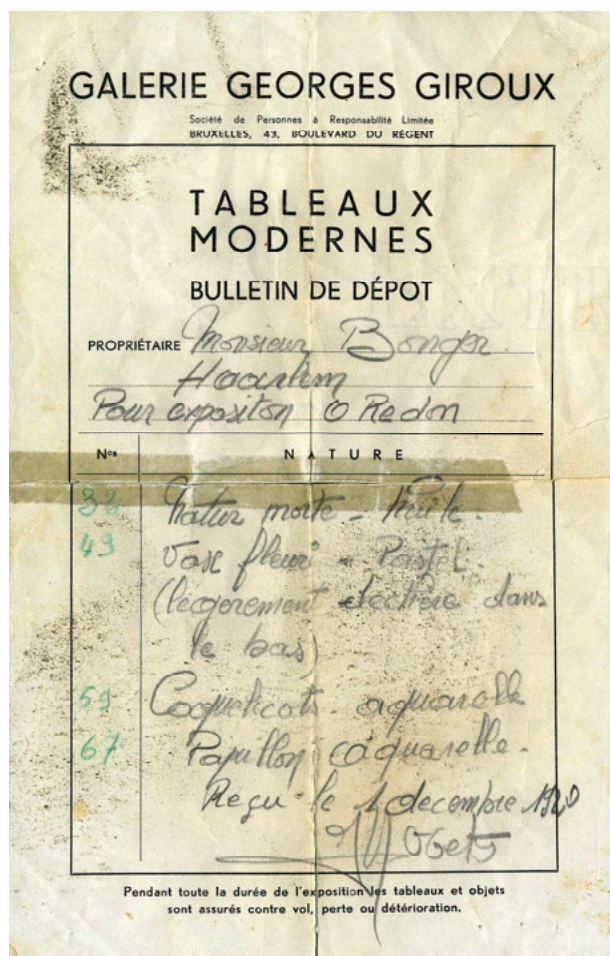 GALERIE GEORGES GIROUX
Société de Personnes à Responsabilité Limitée
BRUXELLES, 43, BOULEVARD DU RÉGENT
TABLEAUX
MODERNES
BULLETIN DE DÉPOT
PROPRIÉTAIRE Monsieur Bonger.
Haarlem
Pour expositon O Redon
Nos NATURE
Natur morte - Huile.
49 Vase fleuri - Pastel.
(légerement dechiré dans
le bas)
59 Coquelicots - aquarelle
67 Papillon aquarelle.
Reçu le 1 decembre 1920
Pendant toute la durée de l'exposition les tableaux et objets
sont assurés contre vol, perte ou détérioration.